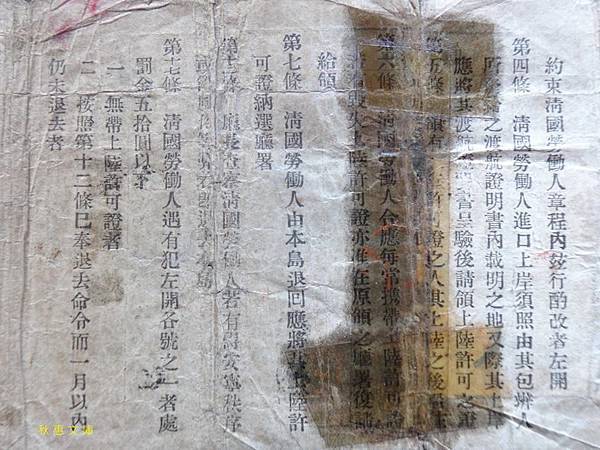 約束清國勞働人章程內玆行酌改者左開
第四條　清國勞働人進口上岸須照由其包辨人
之渡航證明書內載明之地又際其上岸
應將其渡航證明書呈驗後請領上陸許可之證
第五條　領有上陸許可證之人其上陸之後
第六條　清國勞働人合應每常携帶上陸許可證
失上陸許可證亦准在原領之廳署復
給領
第七條　清國勞働人由本島退回應將其上陸許
可證納還廳署
第十二條　廳長查察清國勞働人若有罸安寧秩序
第十七條　清國勞働人遇有犯左開各號之一者處
罰金五拾圓以下
一　無帶上陸許可證者
二　按照第十二條已奉退去命令而一月以內
仍未退去者
秋惠文庫